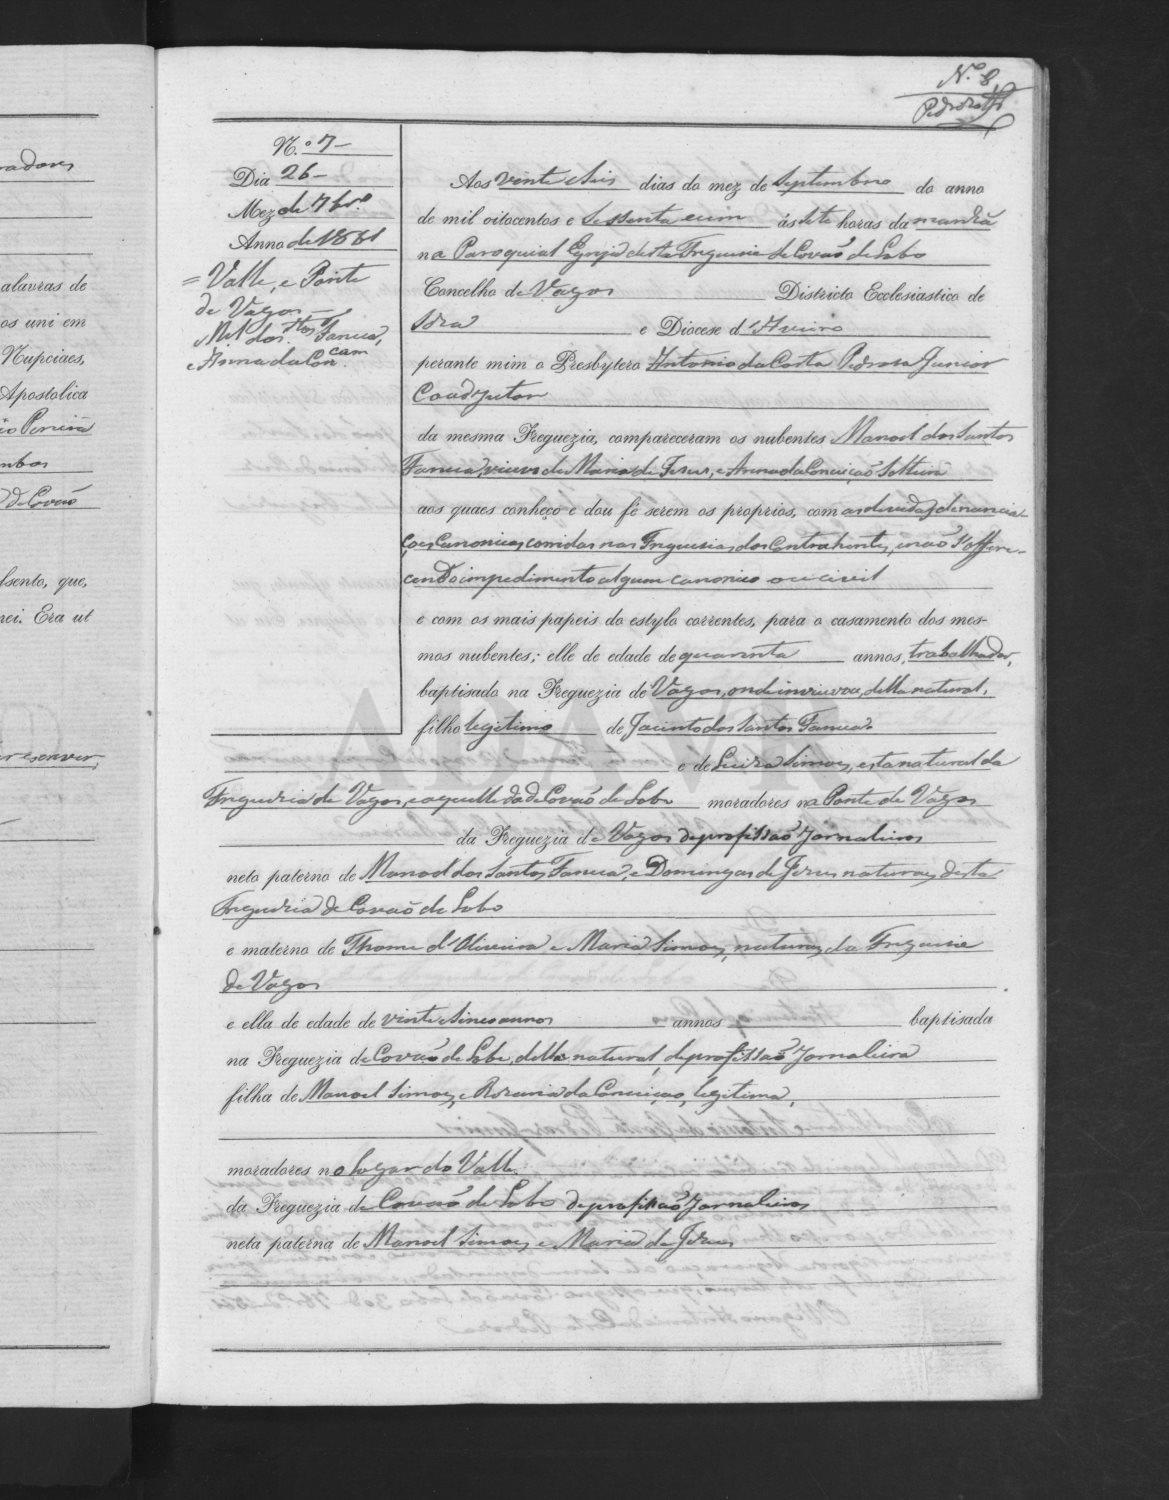 N.º 8
Pedrosa Jr
N.º 7
Dia 26
Mez de 7brº
Anno de 1861
= Valle, e Ponte
de Vagos
Mel dos Stos Faneca,
e Anna da Concam
Aos vinte e seis dias do mez de Septembro do anno
de mil oitocentos e sessenta e um ás sete horas da manhã
na Paroquial Egreja desta Freguezia de Covaõ de Lobo
Concelho de Vagos Districto Ecclesiastico de
e Diocese d'Aveiro
perante mim o Presbytero Antonio da Costa Pedrosa Junior
Coadjutor
da mesma Freguezia, compareceram os nubentes Manoel dos Santos
Faneca, viuvo de Maria de Jesus, e Anna da Conceiçaõ Solteira
aos quaes conheço e dou fé serem os proprios, com as devidas denuncia-
ções Canonicas corridas nas Freguesias dos Contrahentes, e naõ s'offere-
cendo impedimento algum canonico ou civil
e com os mais papeis do estylo correntes, para o casamento dos mes-
mos nubentes; elle de edade de quarenta annos, trabalhador,
baptisado na Freguezia de Vagos, onde inviuvou, della natural,
filho legitimo de Jacinto dos Santos Faneca
e de Luiza Simoes, esta natural da
Freguezia de Vagos, e aquelle da de Covaõ de Lobo moradores na Ponte de Vagos
da Freguezia de Vagos de profissaõ Jornaleiros
neto paterno de Manoel dos Santos Faneca, e Domingas de Jesus naturaes desta
Freguezia de Covaõ de Lobo
e materno de Thome d'Oliveira e Maria Simoes, naturaes da Freguesia
de Vagos
e ella de edade de vinte e sinco annos annos baptisada
na Freguezia de Covaõ de Lobo, della natural, de profissaõ Jornaleira
filha de Manoel Simoes, e Rozaria da Conceiçaõ, legitima,
moradores no Logar do Valle
da Freguezia de Covaõ de Lobo de profissaõ Jornaleiros
neta paterna de Manoel Simoes e Maria de Jesus
radores
alavras de
os uni em
Nupciaes,
Apostolica
Pereira
ambos
de Covaõ
sento, que,
nei. Era ut
escrever,
ADAVR